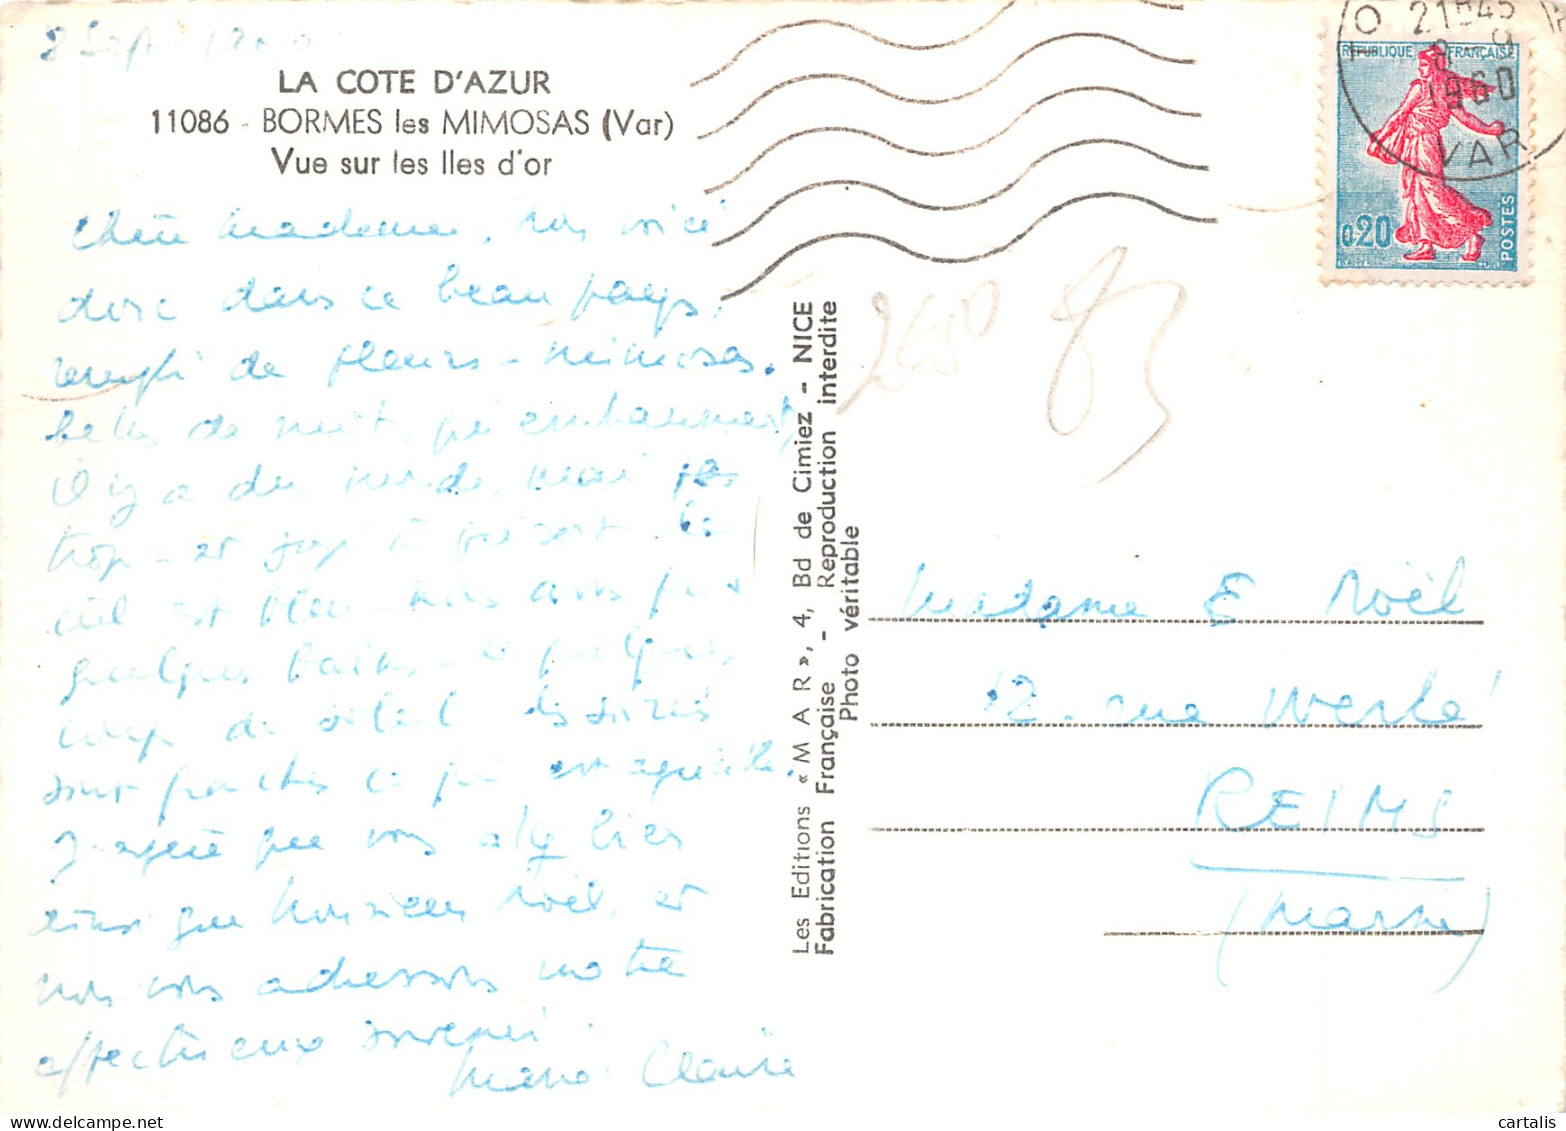 2 Sept. 1960
LA COTE D'AZUR
11086 - BORMES les MIMOSAS (Var)
Vue sur les Iles d'or
Chère Madame, nous voici
donc dans ce beau pays,
rempli de fleurs - mimosas.
belles de nuit, qui embaument,
il y a du monde, mais pas
trop - et jusqu'à présent le
ciel est bleu - nous avons pris
quelques bains - et quelques
coups de soleil les soirées
sont fraîches ce qui est agréable.
J'espère que vous allez bien
ainsi que Monsieur Noël, et
nous vous adressons notre
affectueux souvenir.
Marie Claire
Les Editions « M A R », 4, Bd de Cimiez - NICE
Fabrication Française - Reproduction interdite
Photo véritable
21H45
8 - 9
1960
VAR
REPUBLIQUE FRANÇAISE
0,20
POSTES
83
Madame E. Noël
12. rue Werlé
REIMS
(Marne)
cartalis